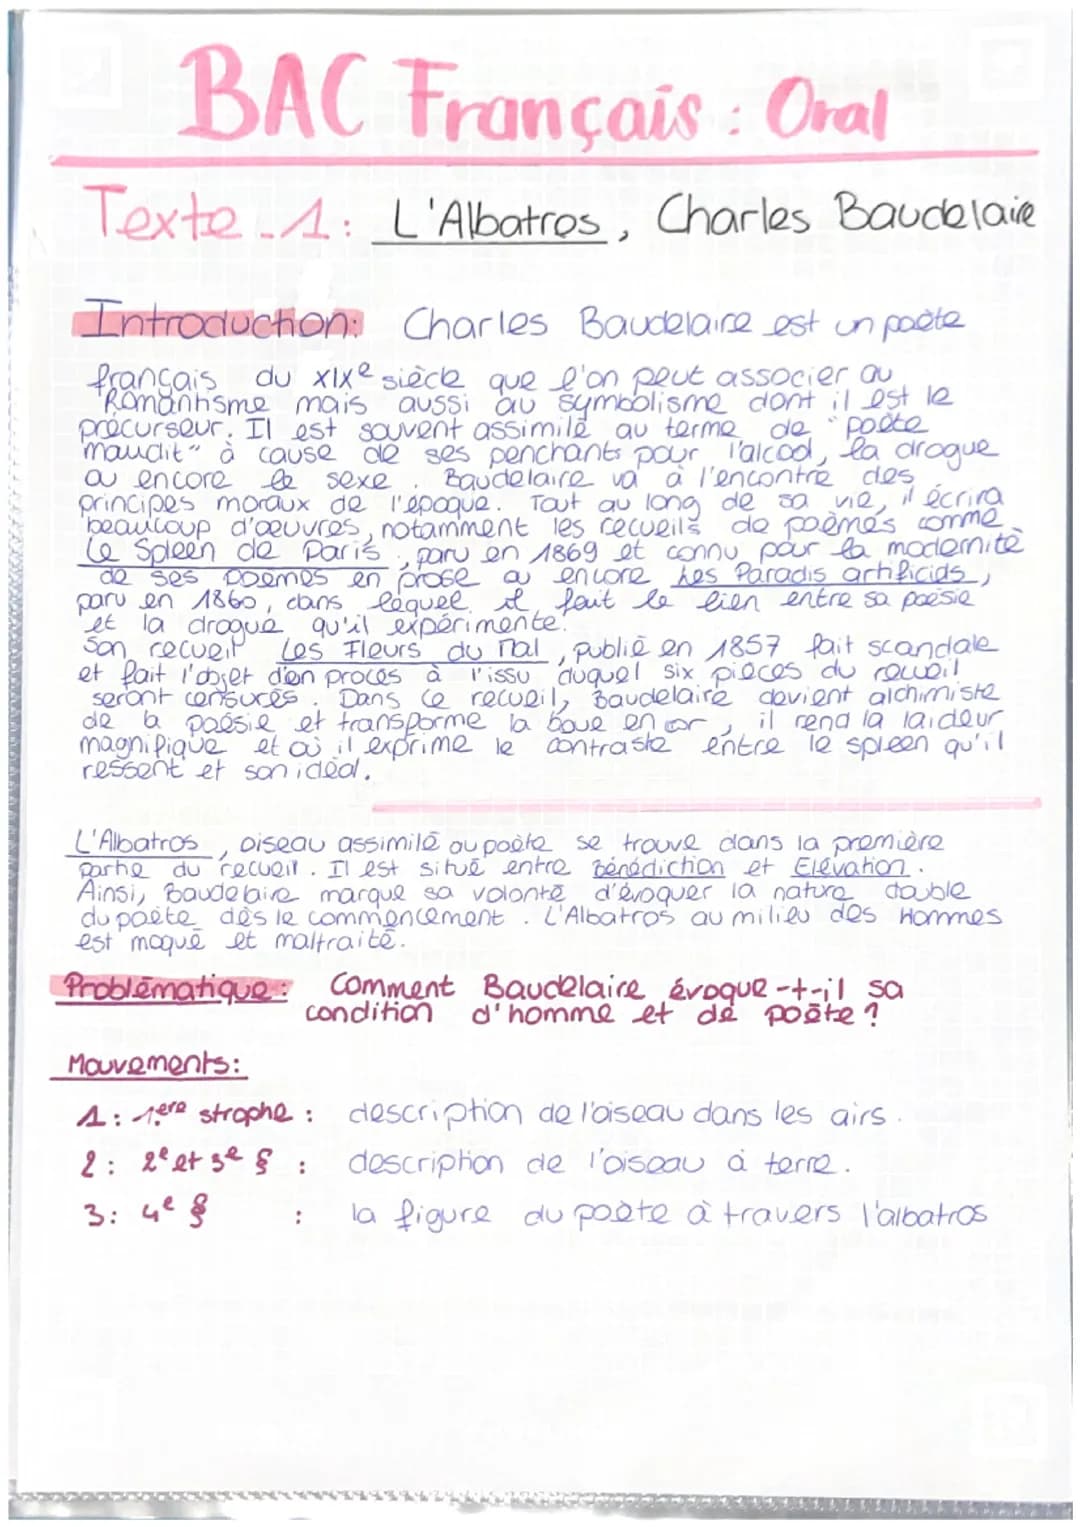 BAC Français : Oral
Texte 1 : L'Albatros, Charles Baudelaire
Introduction: Charles Baudelaire est un poète
français du XIXe siècle que l'on peut associer au
Romantisme mais aussi au symbolisme dont il est le
précurseur. Il est souvent assimilé au terme de "poète
maudit" à cause de ses penchants pour l'alcool, la drogue
ou encore le sexe. Baudelaire va à l'encontre des
principes moraux de l'époque. Tout au long de sa vie, il écrira
beaucoup d'œuvres, notamment les recueils de poèmes comme
Le Spleen de Paris, paru en 1869 et connu pour la modernité
de ses poèmes en prose ou encore Les Paradis artificiels,
paru en 1860, dans lequel il fait le lien entre sa poésie
et la drogue qu'il expérimente.
Son recueil Les Fleurs du Mal, publié en 1857 fait scandale
et fait l'objet d'un procès à l'issu duquel six pièces du recueil
seront censurés. Dans ce recueil, Baudelaire devient alchimiste
de la poésie et transforme la boue en or, il rend la laideur
magnifique et où il exprime le contraste entre le spleen qu'il
ressent et son idéal.
L'Albatros, oiseau assimilé au poète se trouve dans la première
partie du recueil. Il est situé entre Bénédiction et Elévation.
Ainsi, Baudelaire marque sa volonté d'évoquer la nature double
du poète dès le commencement. L'Albatros au milieu des Hommes
est moqué et maltraité.
Problématique : Comment Baudelaire évoque-t-il sa
condition d'homme et de poète ?
Mouvements:
1 : 1ère strophe : description de l'oiseau dans les airs.
2 : 2e et 3e § : description de l'oiseau à terre.
3 : 4e § : la figure du poète à travers l'albatros